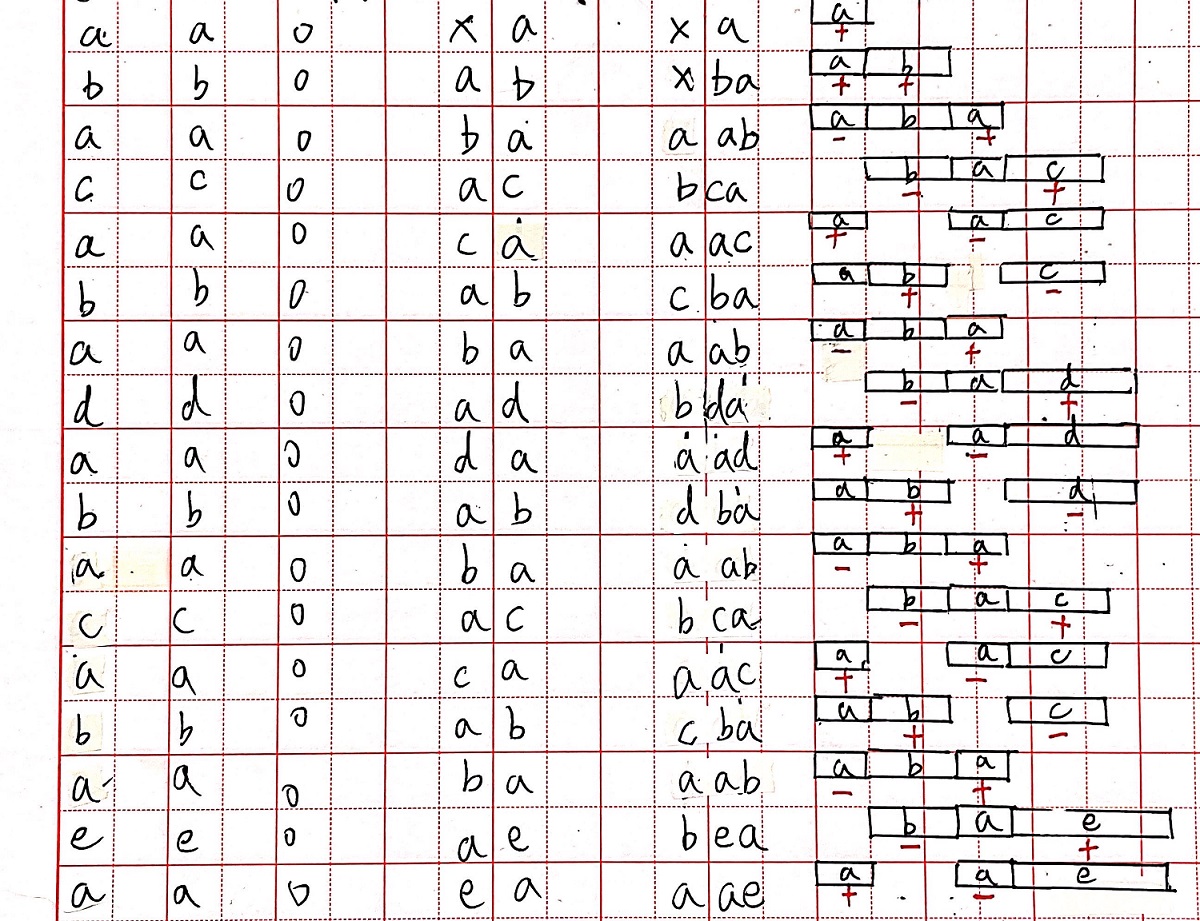 a a 0 x a x a a +
b b 0 a b x ba a b + +
a a 0 b a a ab a b a - +
c c 0 a c b ca b a c - +
a a 0 c a a ac a a c + -
b b 0 a b c ba a b c + -
a a 0 b a a ab a b a - +
d d 0 a d b da b a d - +
a a 0 d a a ad a a d + -
b b 0 a b d ba a b d + -
a a 0 b a a ab a b a - +
c c 0 a c b ca b a c - +
a a 0 c a a ac a a c + -
b b 0 a b c ba a b c + -
a a 0 b a a ab a b a - +
e e 0 a e b ea b a e - +
a a 0 e a a ae a a e + -